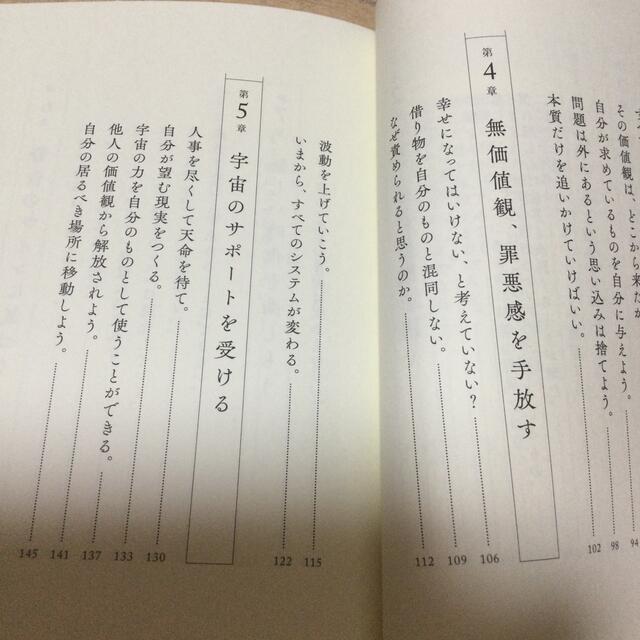 その価値観は、どこから来たか
自分が求めているものを自分に与えよう。 94
問題は外にあるという思い込みは捨てよう。 98
本質だけを追いかけていけばいい。 102
第4章 無価値観、罪悪感を手放す
幸せになってはいけない、と考えていない? 106
借り物を自分のものと混同しない。 109
なぜ責められると思うのか。 112
波動を上げていこう。 115
いまから、すべてのシステムが変わる。 122
第5章 宇宙のサポートを受ける
人事を尽くして天命を待て。 130
自分が望む現実をつくる。 133
宇宙の力を自分のものとして使うことができる。 137
他人の価値観から解放されよう。 141
自分の居るべき場所に移動しよう。 145